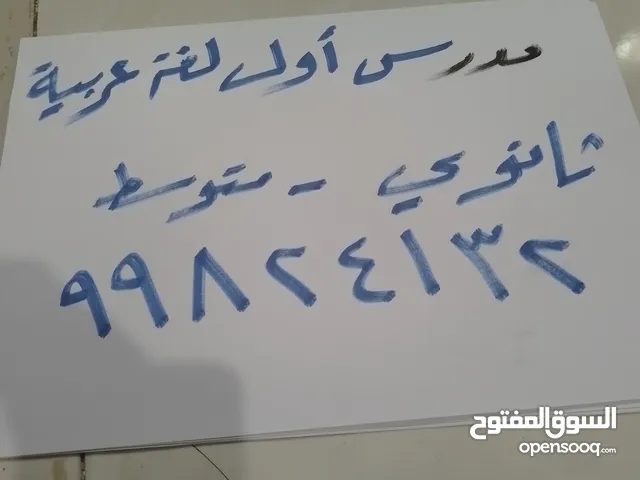 مدرس أول لغة عربية
ثانوي - متوسط
٩٩٨٢٤١٣٢
السوق المفتوح
opensooq.com